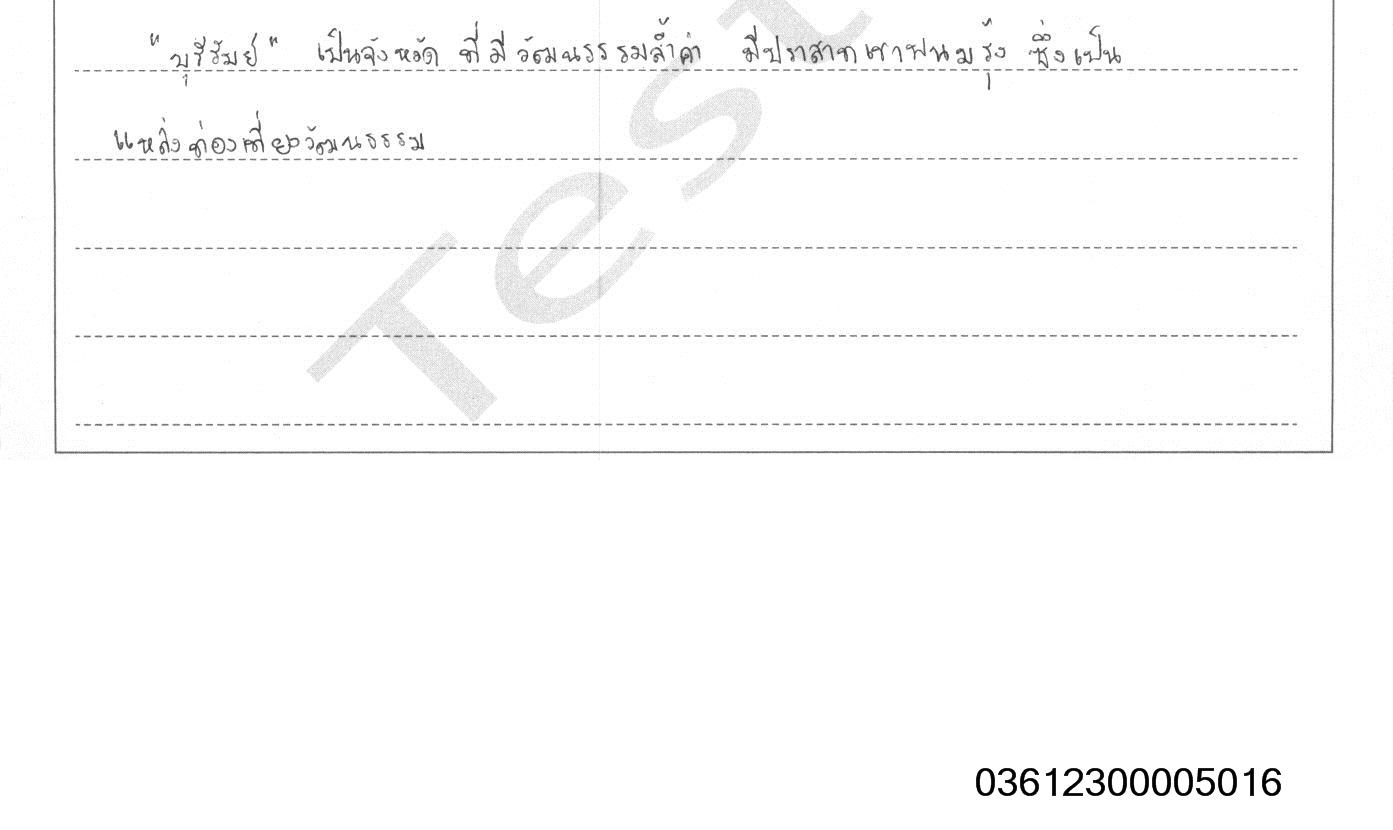 "บุรีรัมย์" เป็นจังหวัด ที่ มี วัฒนธรรมล้ำค่า มีปราสาทเขาพนมรุ้ง ซึ่งเป็น
แหล่งท่องเที่ยววัฒนธรรม
Test
03612300005016